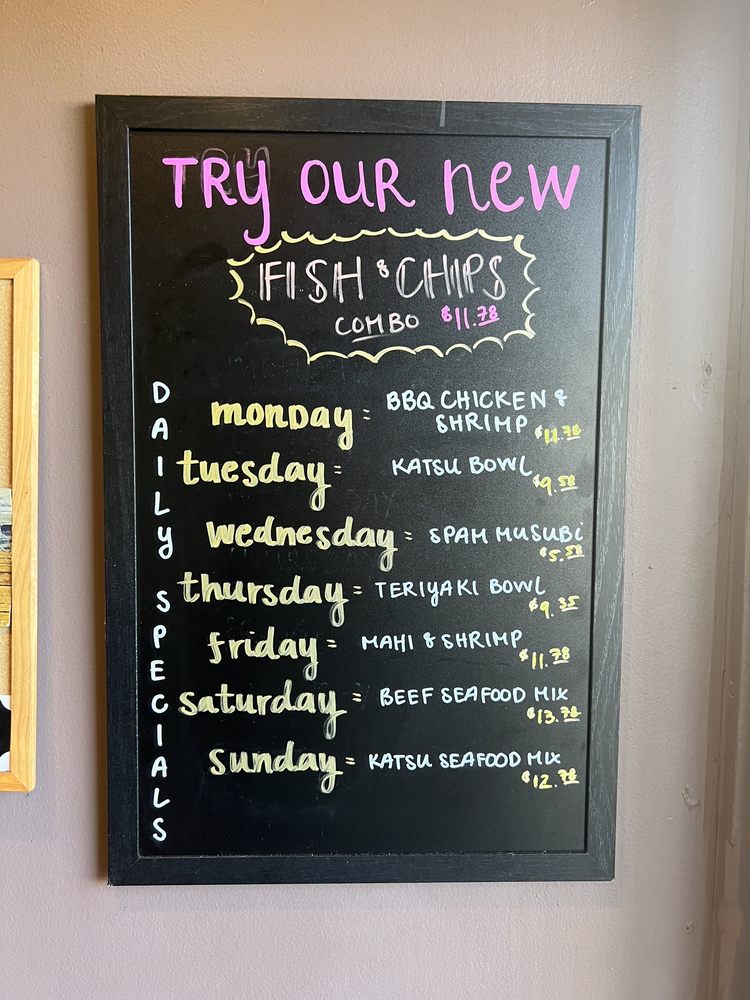 TRY OUR new
FISH & CHIPS
COMBO $11.78
DAILY SPECIALS
monday = BBQ CHICKEN &
SHRIMP $11.78
tuesday = KATSU BOWL $9.58
wednesday = SPAM MUSUBi
$5.58
thursday = TERIYAKI BOWL
$9.35
friday = MAHI & SHRIMP
$11.78
saturday = BEEF SEAFOOD MIX
$13.78
sunday = KATSU SEAFOOD MIX
$12.78